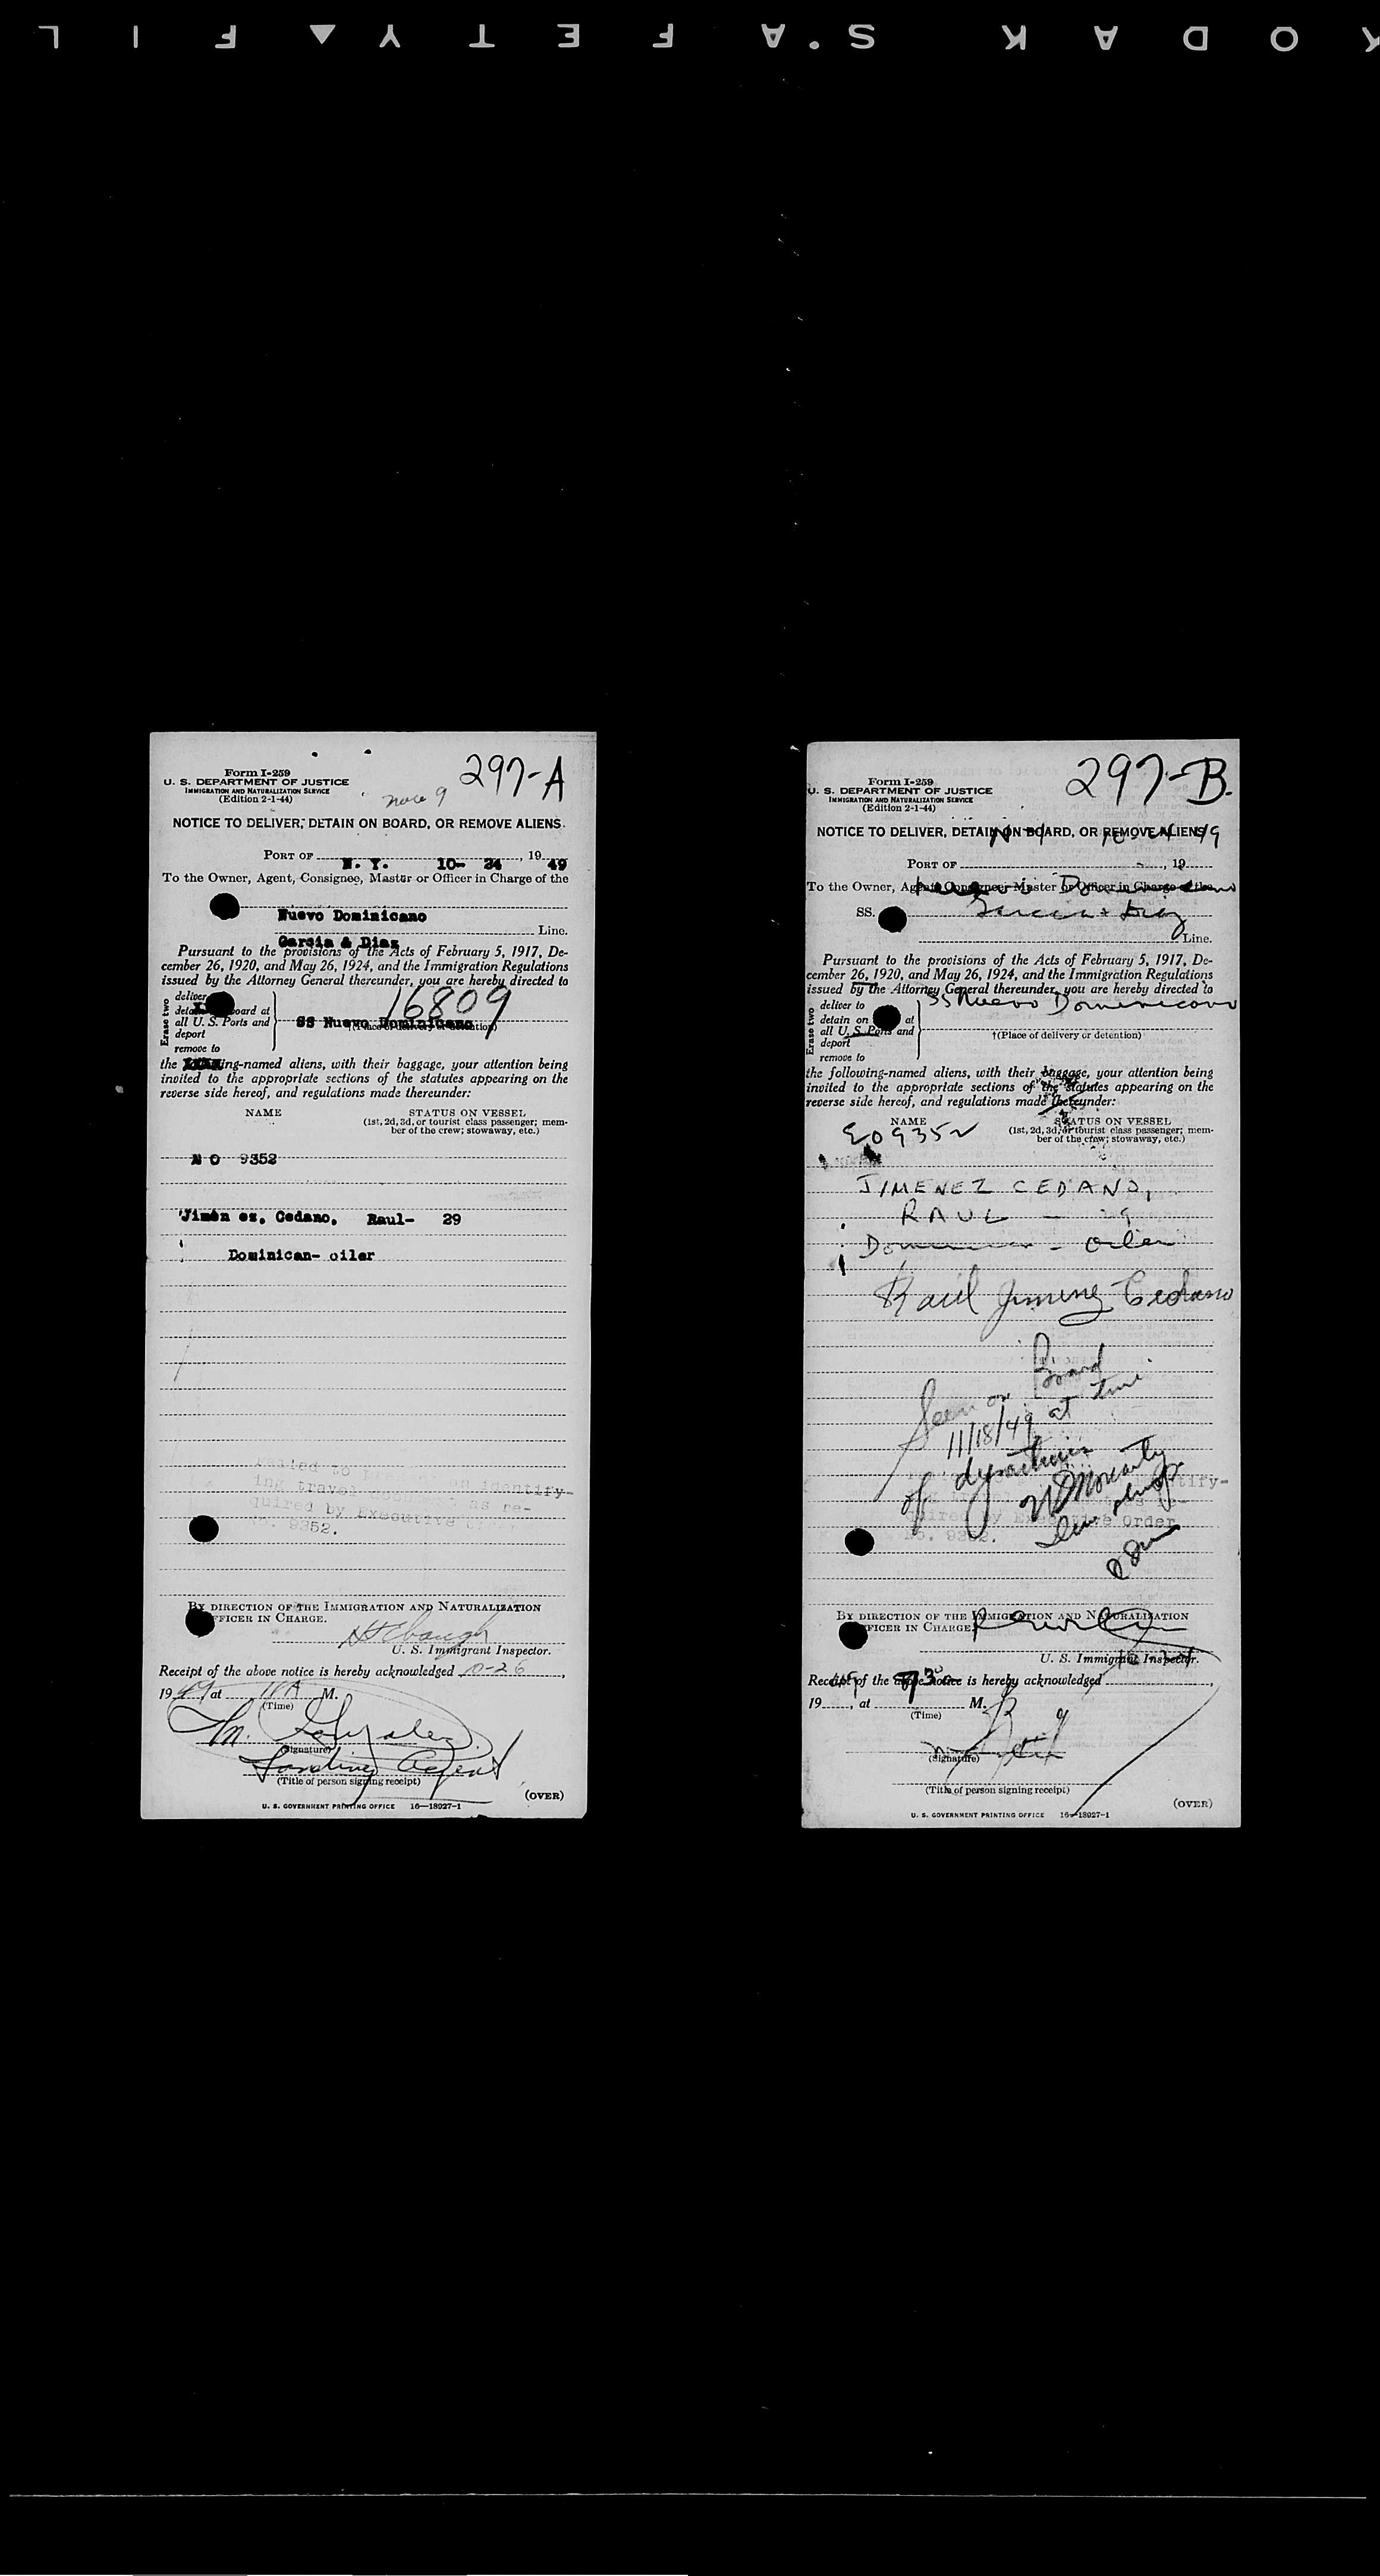 KODAK SAFETY FILM
297-A
Form I-259
U. S. DEPARTMENT OF JUSTICE
IMMIGRATION AND NATURALIZATION SERVICE
(Edition 2-1-44)
NOTICE TO DELIVER, DETAIN ON BOARD, OR REMOVE ALIENS
PORT OF N. Y. 10- 24, 19 49
To the Owner, Agent, Consignee, Master or Officer in Charge of the
Nuevo Dominicano
Garcia & Diaz Line.
Pursuant to the provisions of the Acts of February 5, 1917, De-
cember 26, 1920, and May 26, 1924, and the Immigration Regulations
issued by the Attorney General thereunder, you are hereby directed to
16809
Erase two
deliver
board at
all U. S. Ports and
deport
remove to
SS Nuevo Dominicano
†(Place of delivery or detention)
the ing-named aliens, with their baggage, your attention being
invited to the appropriate sections of the statutes appearing on the
reverse side hereof, and regulations made thereunder:
NAME STATUS ON VESSEL
(1st, 2d, 3d, or tourist class passenger; mem-
ber of the crew; stowaway, etc.)
9352
Jimén ez, Cedano, Raul- 29
Dominican- oiler
Failed to present an identify-
ing travel as re-
quired by Executive Order
No. 9352.
BY DIRECTION OF THE IMMIGRATION AND NATURALIZATION
OFFICER IN CHARGE.
U. S. Immigrant Inspector.
Receipt of the above notice is hereby acknowledged 10-26,
1949, at 11 A M.
(Time)
M. Gonzalez
(Signature)
Landing Agent
(Title of person signing receipt)
(OVER)
U. S. GOVERNMENT PRINTING OFFICE 16—18027-1
297-B.
Form I-259
U. S. DEPARTMENT OF JUSTICE
IMMIGRATION AND NATURALIZATION SERVICE
(Edition 2-1-44)
NOTICE TO DELIVER, DETAIN ON BOARD, OR REMOVE ALIENS
N Y 10-24 49
PORT OF , 19
To the Owner, Agent, Consignee, Master or Officer in Charge of the
Nuevo Dominicano
SS. Garcia & Diaz
Line.
Pursuant to the provisions of the Acts of February 5, 1917, De-
cember 26, 1920, and May 26, 1924, and the Immigration Regulations
issued by the Attorney General thereunder, you are hereby directed to
SS Nuevo Dominicano
Erase two
deliver to
detain on at
all U. S. Ports and
deport
remove to
†(Place of delivery or detention)
the following-named aliens, with their baggage, your attention being
invited to the appropriate sections of the statutes appearing on the
reverse side hereof, and regulations made thereunder:
NAME STATUS ON VESSEL
(1st, 2d, 3d, or tourist class passenger; mem-
ber of the crew; stowaway, etc.)
EO 9352
JIMENEZ CEDANO,
RAUL - 29
Dominican - oiler
Raúl Jimenez Cedano
Seen on Board
11/18/49 at time
of departure
quired by Executive Order
No. 9352.
BY DIRECTION OF THE IMMIGRATION AND NATURALIZATION
OFFICER IN CHARGE.
U. S. Immigrant Inspector.
Receipt of the above notice is hereby acknowledged
19 , at M.
(Time)
(Signature)
(Title of person signing receipt)
(OVER)
U. S. GOVERNMENT PRINTING OFFICE 16—18027-1